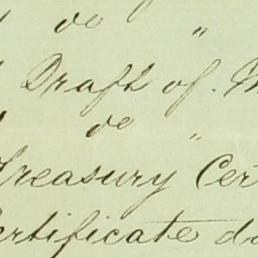 do "
Draft of.
do "
Treasury Cer
Certificate do